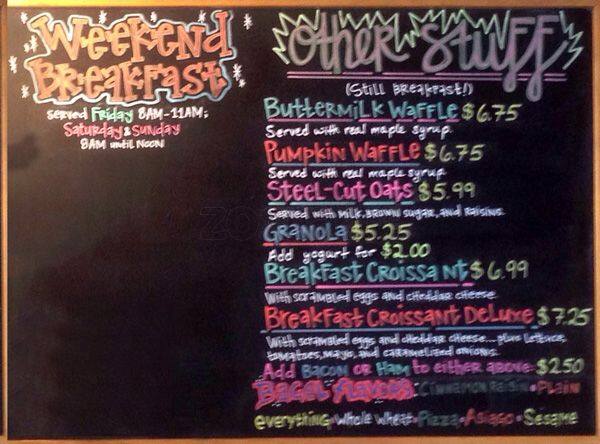 Weekend
Breakfast
served Friday 8AM-11AM;
Saturday & Sunday
8AM until NOON!
Other Stuff
(Still Breakfast!)
Buttermilk Waffle $6.75
Served with real maple syrup.
Pumpkin Waffle $6.75
Served with real maple syrup
Steel-Cut Oats $5.99
Served with milk, brown sugar, and raisins.
Granola $5.25
Add yogurt for $2.00
Breakfast Croissant $6.99
With scrambled eggs and cheddar cheese.
Breakfast Croissant Deluxe $7.25
With scrambled eggs and cheddar cheese... plus lettuce,
tomatoes, mayo, and caramelized onions.
Add Bacon or Ham to either above $2.50
Bagel Flavors: Cinnamon Raisin • Plain
everything • Whole Wheat • Pizza • Asiago • Sesame